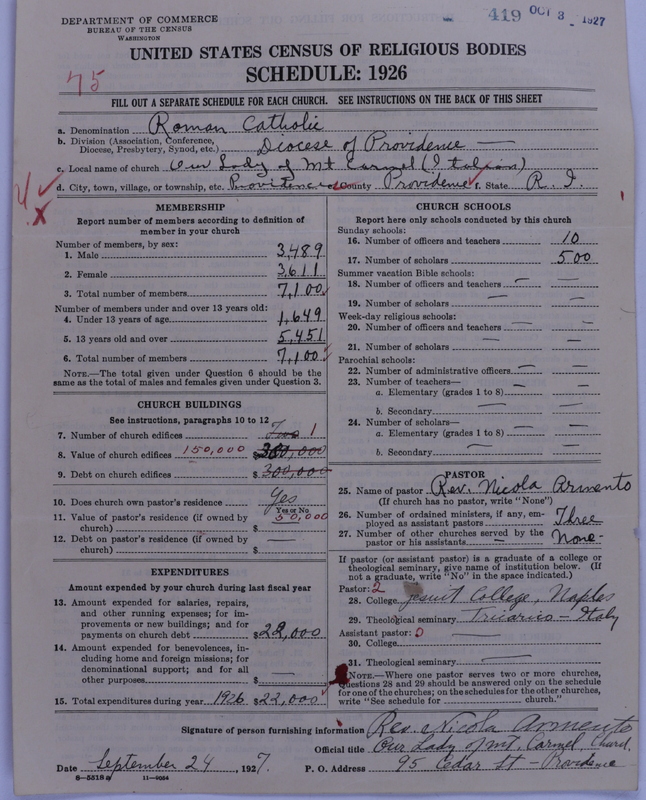 DEPARTMENT OF COMMERCE
BUREAU OF THE CENSUS
WASHINGTON
419 OCT 3 1927
UNITED STATES CENSUS OF RELIGIOUS BODIES
SCHEDULE: 1926
75
FILL OUT A SEPARATE SCHEDULE FOR EACH CHURCH. SEE INSTRUCTIONS ON THE BACK OF THIS SHEET
a. Denomination Roman Catholic
b. Division (Association, Conference, Diocese, Presbytery, Synod, etc.) Diocese of Providence —
c. Local name of church Our Lady of Mt Carmel (Italian)
d. City, town, village, or township, etc. Providence e. County Providence f. State R. I.
MEMBERSHIP
Report number of members according to definition of
member in your church
Number of members, by sex:
1. Male 3,489
2. Female 3,611
3. Total number of members 7,100
Number of members under and over 13 years old:
4. Under 13 years of age 1,649
5. 13 years old and over 5,451
6. Total number of members 7,100
NOTE.—The total given under Question 6 should be
same as the total of males and females given under Question 3.
CHURCH BUILDINGS
See instructions, paragraphs 10 to 12
7. Number of church edifices Two 1
8. Value of church edifices 150,000 $300,000
9. Debt on church edifices $300,000
10. Does church own pastor's residence Yes
Yes or No
11. Value of pastor's residence (if owned by 50,000
church) $
12. Debt on pastor's residence (if owned by —
church) $
EXPENDITURES
Amount expended by your church during last fiscal year
13. Amount expended for salaries, repairs,
and other running expenses; for im-
provements or new buildings; and for
payments on church debt $22,000
14. Amount expended for benevolences, in-
cluding home and foreign missions; for
denominational support; and for all
other purposes $ —
15. Total expenditures during year 1926 $22,000
CHURCH SCHOOLS
Report here only schools conducted by this church
Sunday schools:
16. Number of officers and teachers 10
17. Number of scholars 500
Summer vacation Bible schools:
18. Number of officers and teachers —
19. Number of scholars —
Week-day religious schools:
20. Number of officers and teachers —
21. Number of scholars —
Parochial schools:
22. Number of administrative officers —
23. Number of teachers—
a. Elementary (grades 1 to 8) —
b. Secondary —
24. Number of scholars—
a. Elementary (grades 1 to 8) —
b. Secondary —
PASTOR
25. Name of pastor Rev. Nicola Armento
(If church has no pastor, write "None")
26. Number of ordained ministers, if any, em-
ployed as assistant pastors Three
27. Number of other churches served by the
pastor or his assistants None-
If pastor (or assistant pastor) is a graduate of a college or
theological seminary, give name of institution below. (If
not a graduate, write "No" in the space indicated.)
Pastor: 2
28. College Jesuit College, Naples
29. Theological seminary Tricarico – Italy
Assistant pastor: 0
30. College
31. Theological seminary —
NOTE.—Where one pastor serves two or more churches,
Questions 28 and 29 should be answered only on the schedule
for one of the churches; on the schedules for the other churches,
write "See schedule for church."
Signature of person furnishing information Rev. Nicola Armento
Official title Our Lady of Mt. Carmel Church
Date September 24, 1927. P. O. Address 95 Cedar St – Providence
8-5518 a 11-9064